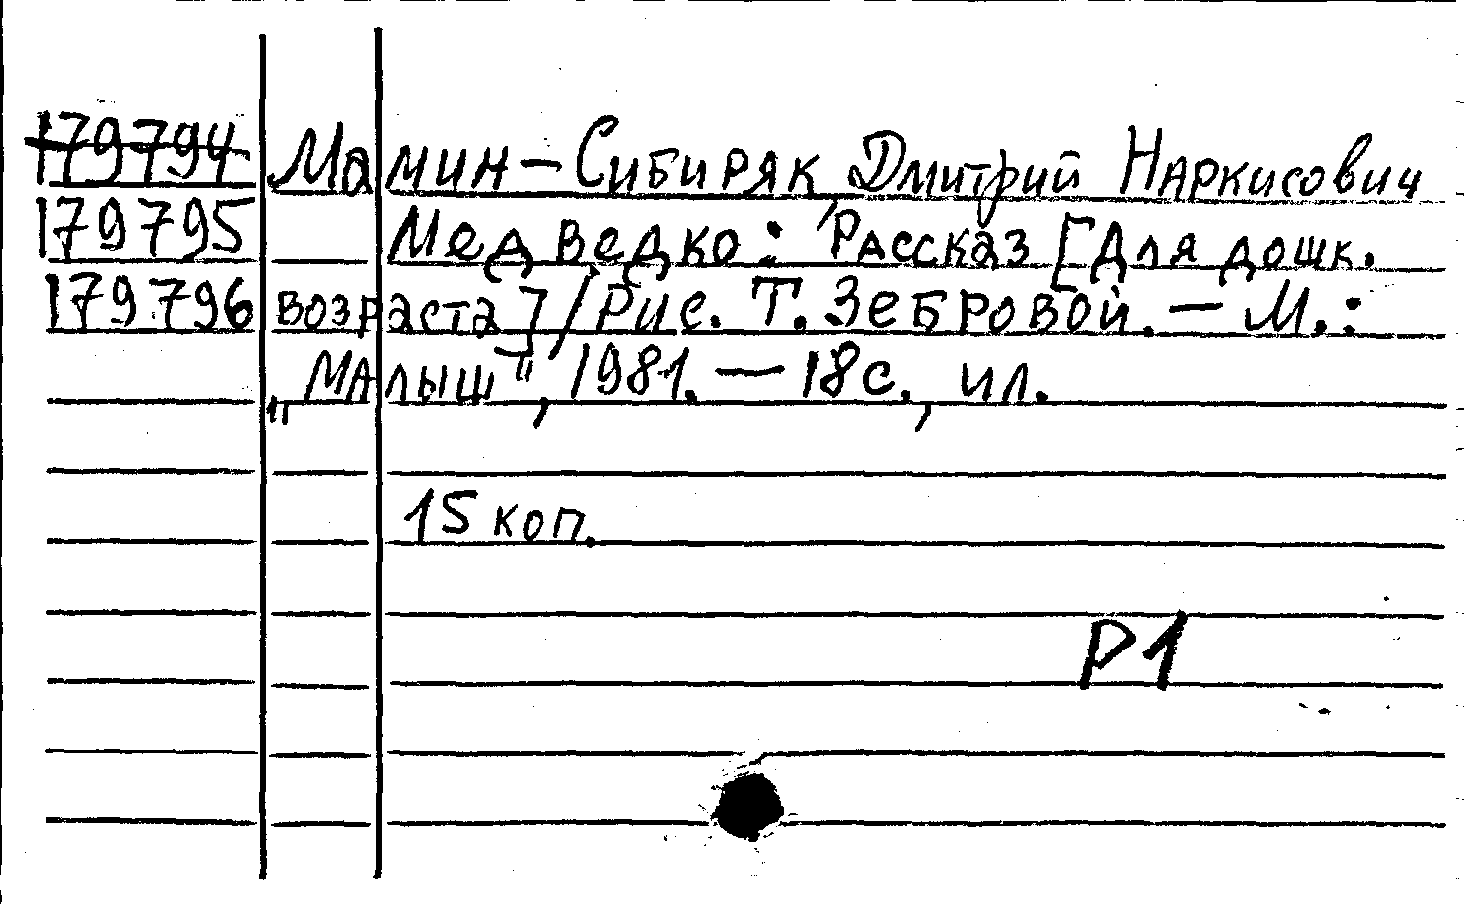 179794 Мамин-Сибиряк Дмитрий Наркисович
179795 Медведко: Рассказ [Для дошк.
179796 возраста]/Рис. Т. Зебровой. — М.:
„Малыш", 1981. — 18с., ил.
15 коп.
Р1